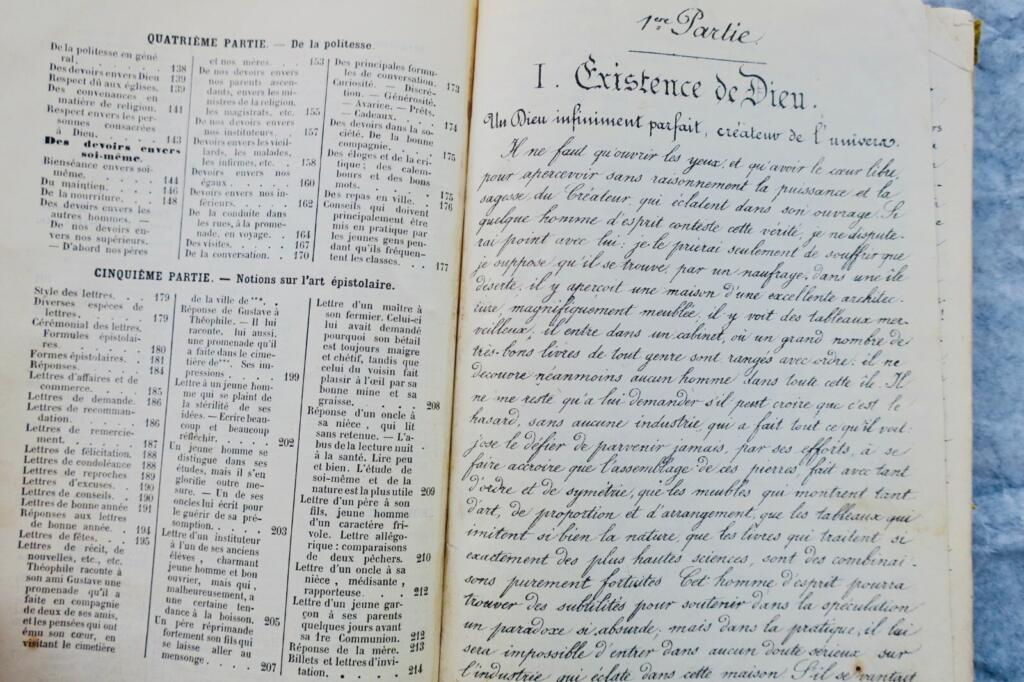 QUATRIÈME PARTIE. — De la politesse.
De la politesse en géné
ral. 138
Des devoirs envers Dieu 139
Respect dû aux églises. 139
Des convenances en
matière de religion. 141
Respect envers les per-
sonnes consacrées
à Dieu. 143
Des devoirs envers
soi-même.
Bienséance envers soi-
même. 144
Du maintien. 146
De la nourriture. 148
Des devoirs envers les
autres hommes. —
De nos devoirs en-
vers nos supérieurs.
— D'abord nos pères
et nos mères. 153
De nos devoirs envers
nos parents ascen-
dants, envers les mi-
nistres de la religion,
les magistrats, etc. 155
De nos devoirs envers
nos instituteurs. 157
Devoirs envers les vieil-
lards, les malades,
les infirmes, etc. 158
Devoirs envers nos
égaux. 160
Devoirs envers nos in-
férieurs. 162
De la conduite dans
les rues, à la prome-
nade, en voyage. 164
Des visites. 167
De la conversation. 170
Des principales formu-
les de conversation. 173
Curiosité. — Discré-
tion. — Générosité.
— Avarice. — Prêts.
— Cadeaux. 174
Des devoirs dans la so-
ciété. De la bonne
compagnie. 175
Des éloges et de la cri-
tique; des calem-
bours et des bons
mots. 175
Des repas en ville. 176
Conseils qui doivent
principalement être
mis en pratique par
les jeunes gens pen-
dant qu'ils fréquen-
tent les classes. 177
CINQUIÈME PARTIE. — Notions sur l'art épistolaire.
Style des lettres. 179
Diverses espèces de
lettres. 179
Cérémonial des lettres.
Formules épistolai-
res. 180
Formes épistolaires. 181
Réponses. 184
Lettres d'affaires et de
commerce. 185
Lettres de demande. 186
Lettres de recomman-
dation. 186
Lettres de remercie-
ment. 187
Lettres de félicitation. 188
Lettres de condoléance 188
Lettres de reproches 189
Lettres d'excuses. 190
Lettres de conseils. 190
Lettres de bonne année 191
Réponses aux lettres
de bonne année. 194
Lettres de fêtes. 195
Lettres de récit, de
nouvelles, etc., etc.
Théophile raconte à
son ami Gustave une
promenade qu'il a
faite en compagnie
de deux de ses amis,
et les pensées qui ont
ému son cœur, en
visitant le cimetière
de la ville de ***.
Réponse de Gustave à
Théophile. — Il lui
raconte, lui aussi,
une promenade qu'il
a faite dans le cime-
tière de***. Ses im-
pressions. 199
Lettre à un jeune hom-
me qui se plaint de
la stérilité de ses
idées. — Ecrire beau-
coup et beaucoup
réfléchir. 202
Un jeune homme se
distingue dans ses
études, mais il s'en
glorifie outre me-
sure. — Un de ses
oncles lui écrit pour
le guérir de sa pré-
somption. 203
Lettre d'un instituteur
à l'un de ses anciens
élèves, charmant
jeune homme et bon
ouvrier, mais qui,
malheureusement, a
une certaine ten-
dance à la boisson. 205
Un père réprimande
fortement son fils qui
se laisse aller au
mensonge. 207
Lettre d'un maître à
son fermier. Celui-ci
lui avait demandé
pourquoi son bétail
est toujours maigre
et chétif, tandis que
celui du voisin fait
plaisir à l'œil par sa
bonne mine et sa
graisse. 208
Réponse d'un oncle à
sa nièce, qui lit
sans retenue. — L'a-
bus de la lecture nuit
à la santé. Lire peu
et bien. L'étude de
soi-même et de la
nature est la plus utile 209
Lettre d'un père à son
fils, jeune homme
d'un caractère fri-
vole. Lettre allégo-
rique: comparaisons
de deux pêchers. 210
Lettre d'un oncle à sa
nièce, médisante,
rapporteuse. 212
Lettre d'un jeune gar-
çon à ses parents
quelques jours avant
sa 1re Communion. 212
Réponse de la mère. 213
Billets et lettres d'invi-
tation. 214
1ere Partie.
I. Existence de Dieu.
Un Dieu infiniment parfait, créateur de l'univers.
Il ne faut qu'ouvrir les yeux, et qu'avoir le cœur libre,
pour apercevoir sans raisonnement la puissance et la
sagesse du Créateur qui éclatent dans son ouvrage. Si
quelque homme d'esprit conteste cette vérité, je ne dispute-
rai point avec lui; je le prierai seulement de souffrir que
je suppose qu'il se trouve, par un naufrage, dans une île
déserte, il y aperçoit une maison d'une excellente architec-
ture, magnifiquement meublée, il y voit des tableaux mer-
veilleux, il entre dans un cabinet, où un grand nombre de
très-bons livres de tout genre sont rangés avec ordre; il ne
découvre néanmoins aucun homme dans toute cette île. Il
ne me reste qu'à lui demander s'il peut croire que c'est le
hasard, sans aucune industrie, qui a fait tout ce qu'il voit:
j'ose le défier de parvenir jamais, par ses efforts, à se
faire accroire que l'assemblage de ces pierres, fait avec tant
d'ordre et de symétrie, que les meubles qui montrent tant
d'art, de proportion et d'arrangement, que les tableaux qui
imitent si bien la nature, que les livres qui traitent si
exactement des plus hautes sciences, sont des combinai-
sons purement fortuites Cet homme d'esprit pourra
trouver des subtilités pour soutenir dans la spéculation
un paradoxe si absurde; mais dans la pratique, il lui
sera impossible d'entrer dans aucun doute sérieux sur
l'industrie qui éclate dans cette maison S'il se vantait